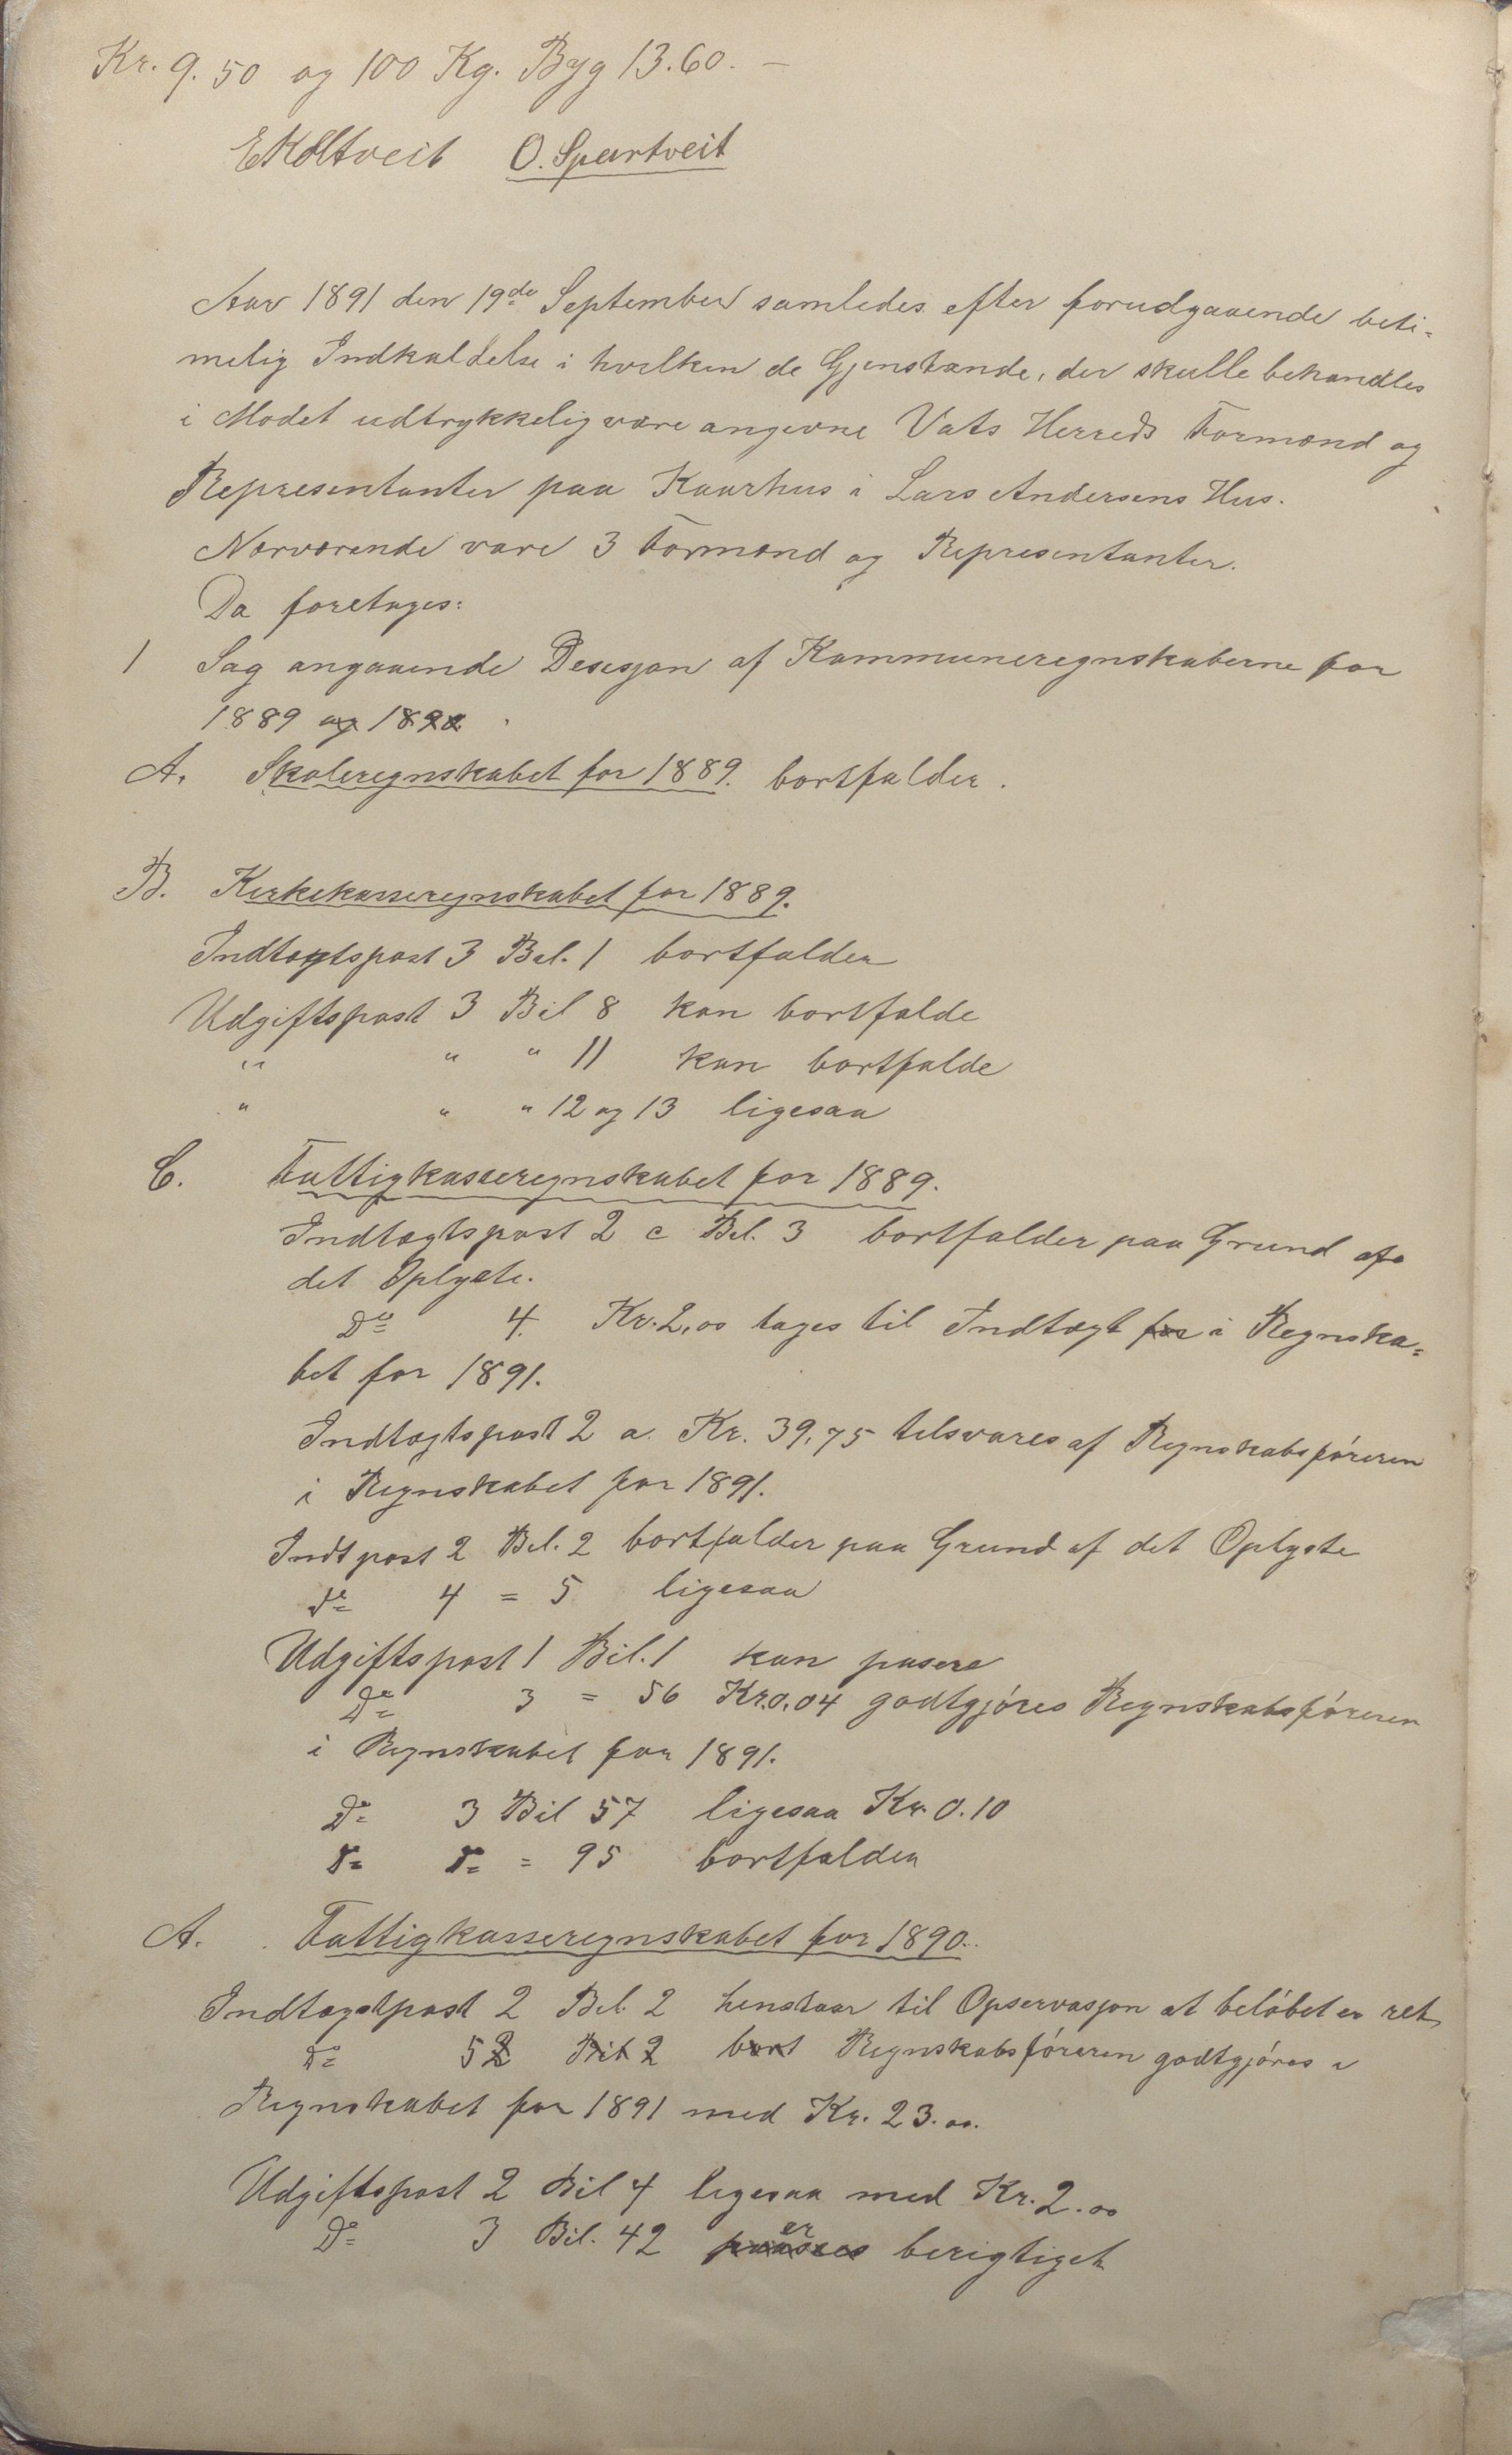 Kr. 9.50 og 100 Kg. Byg 13.60. —
E Koltveit O. Spartveit
Aar 1891 den 19de September samledes efter forudgaaende beti-
melig Indkaldelse i hvilken de Gjenstande, der skulle behandles
i Mødet udtrykkelig vare angivne Vats Herreds Formænd og
Representanter paa Kaarhus i Lars Andersens Hus.
Nærværende vare 3 Formænd og Representanter.
Da foretages:
1 Sag angaaende Desisjon af Kommuneregnskaberne for
1889 og 1890
A. Skoleregnskabet for 1889. bortfalder.
B. Kirkekasseregnskabet for 1889.
Indtægtspost 3 Bil. 1 bortfalder
Udgiftspost 3 Bil 8 kan bortfalde
" " " 11 kan bortfalde
" " " 12 og 13 ligesaa
C. Fattigkasseregnskabet for 1889.
Indtægtspost 2 c Bil. 3 bortfalder paa Grund af
det Oplyste.
Do 4. Kr. 2,00 tages til Indtægt for i Regnska-
bet for 1891.
Indtægtspost 2 a. Kr. 39,75 tilsvares af Regnskabsføreren
i Regnskabet for 1891.
Indt post 2 Bil. 2 bortfalder paa Grund af det Oplyste
do 4 = 5 ligesaa
Udgiftspost 1 Bil. 1 kan pasere
Do 3 = 56 Kr. 0,04 godtgjøres Regnskabsføreren
i Regnskabet for 1891.
Do 3 Bil 57 ligesaa Kr 0.10
Do Do = 95 bortfalder
A. Fattigkasseregnskabet for 1890.
Indtægtpost 2 Bil. 2 henstaar til Opservasjon at beløbet er ret
Do 5 2 Bil 2 bort Regnskabsføreren godtgjøres i
Regnskabet for 1891 med Kr. 23.00.
Udgiftspost 2 Bil 4 ligesaa med Kr. 2.00
Do 3 Bil. 42 er berigtiget